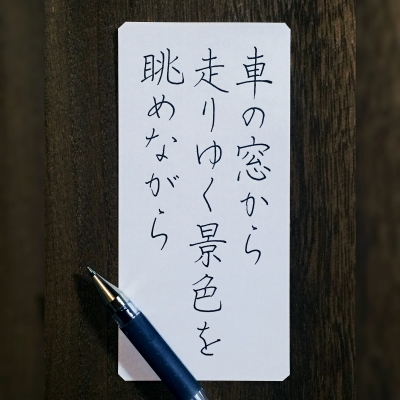 車の窓から
走りゆく景色を
眺めながら